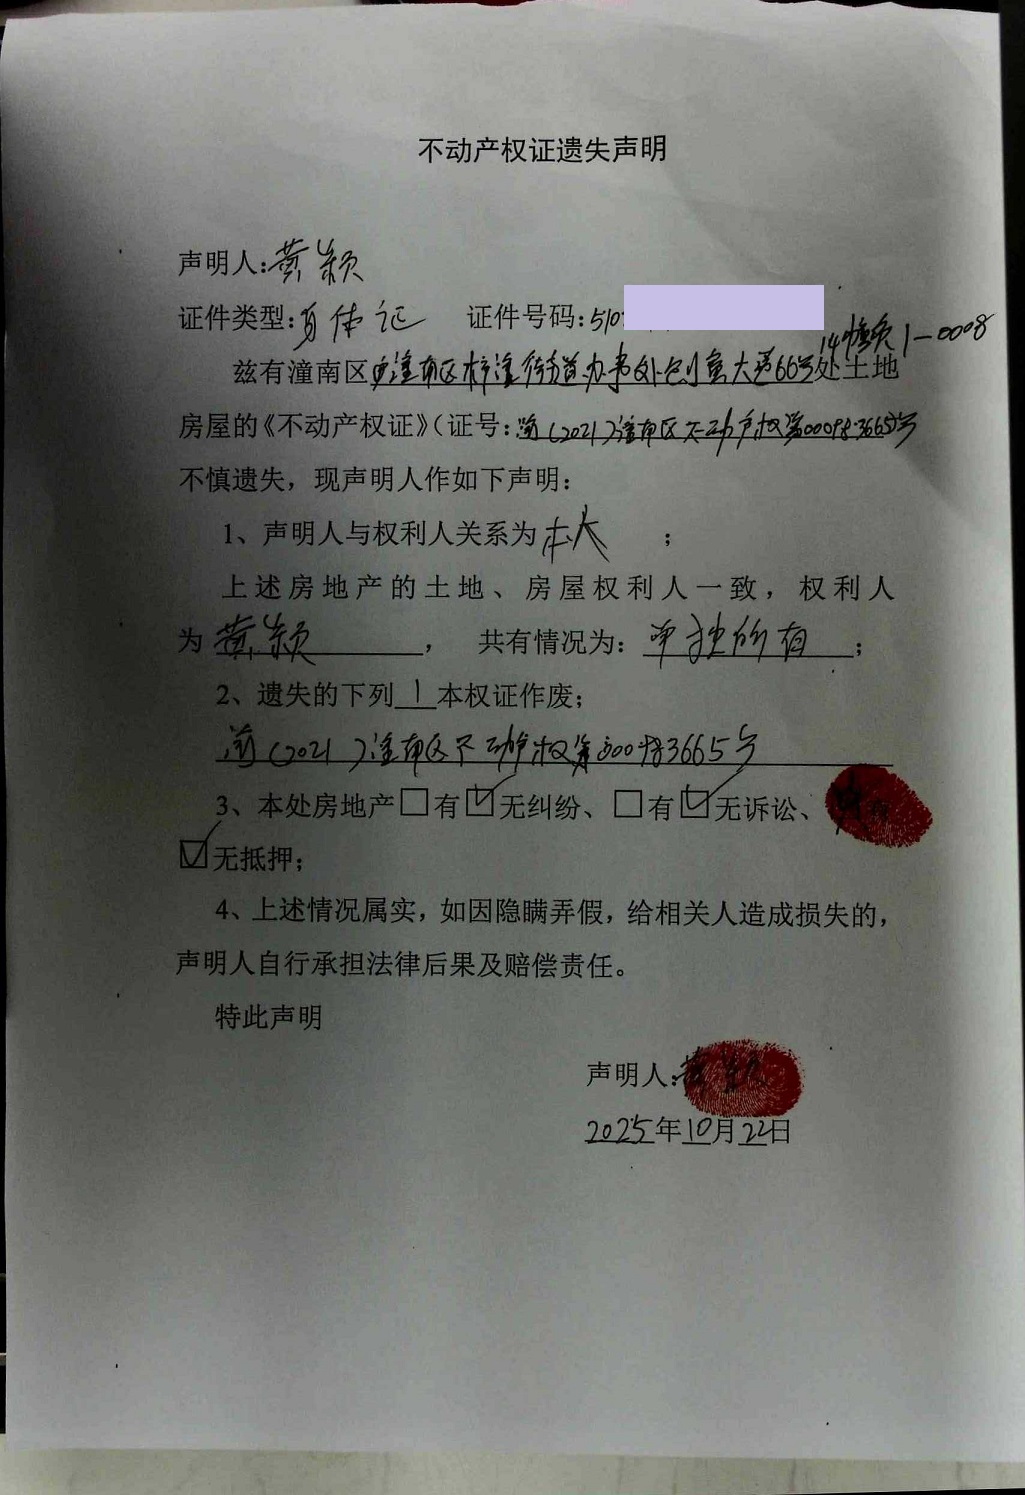 不动产权证遗失声明
声明人:黄颖
证件类型:身体证 证件号码:510
14幢负1-0008
兹有潼南区潼南区梓潼街道办事处创业大道66号处土地
房屋的《不动产权证》(证号:渝(2021)潼南区不动产权第000983665号
不慎遗失，现声明人作如下声明：
1、声明人与权利人关系为本人；
上述房地产的土地、房屋权利人一致，权利人
为黄颖，共有情况为：单独所有；
2、遗失的下列1本权证作废；
渝(2021)潼南区不动产权第000983665号
3、本处房地产□有☑无纠纷、□有☑无诉讼、
☑无抵押；
4、上述情况属实，如因隐瞒弄假，给相关人造成损失的，
声明人自行承担法律后果及赔偿责任。
特此声明
声明人:黄颖
2025年10月22日